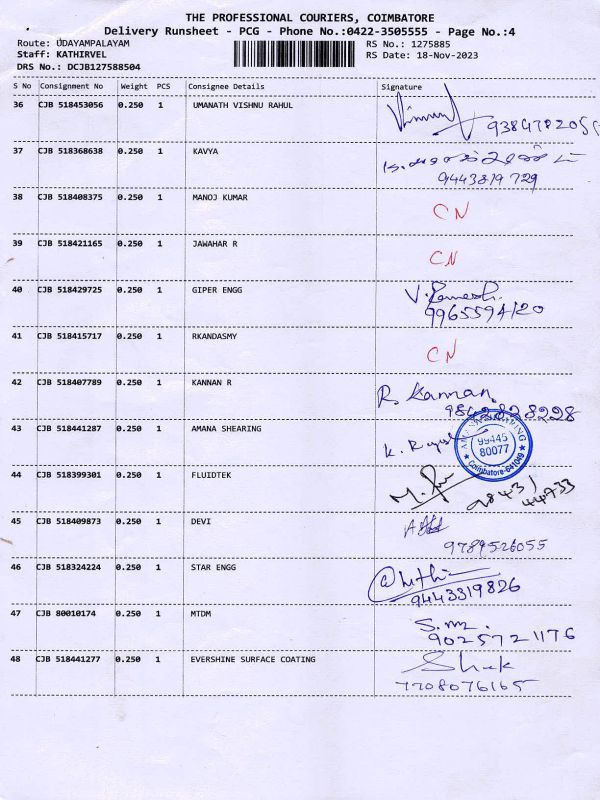 THE PROFESSIONAL COURIERS, COIMBATORE
Delivery Runsheet - PCG - Phone No.:0422-3505555 - Page No.:4
Route: UDAYAMPALAYAM RS No.: 1275885
Staff: KATHIRVEL RS Date: 18-Nov-2023
DRS No.: DCJB127588504
S No Consignment No Weight PCS Consignee Details Signature
36 CJB 518453056 0.250 1 UMANATH VISHNU RAHUL
37 CJB 518368638 0.250 1 KAVYA
9443819729
38 CJB 518408375 0.250 1 MANOJ KUMAR CN
39 CJB 518421165 0.250 1 JAWAHAR R CN
40 CJB 518429725 0.250 1 GIPER ENGG V. Ramesh.
9965594120
41 CJB 518415717 0.250 1 RKANDASMY CN
42 CJB 518407789 0.250 1 KANNAN R R. Kannan.
9842828228
43 CJB 518441287 0.250 1 AMANA SHEARING
99445
80077
Coimbatore-641049
44 CJB 518399301 0.250 1 FLUIDTEK
98431
44933
45 CJB 518409873 0.250 1 DEVI
9789526055
46 CJB 518324224 0.250 1 STAR ENGG
9443319826
47 CJB 80010174 0.250 1 MTDM
9025721176
48 CJB 518441277 0.250 1 EVERSHINE SURFACE COATING
7708076165